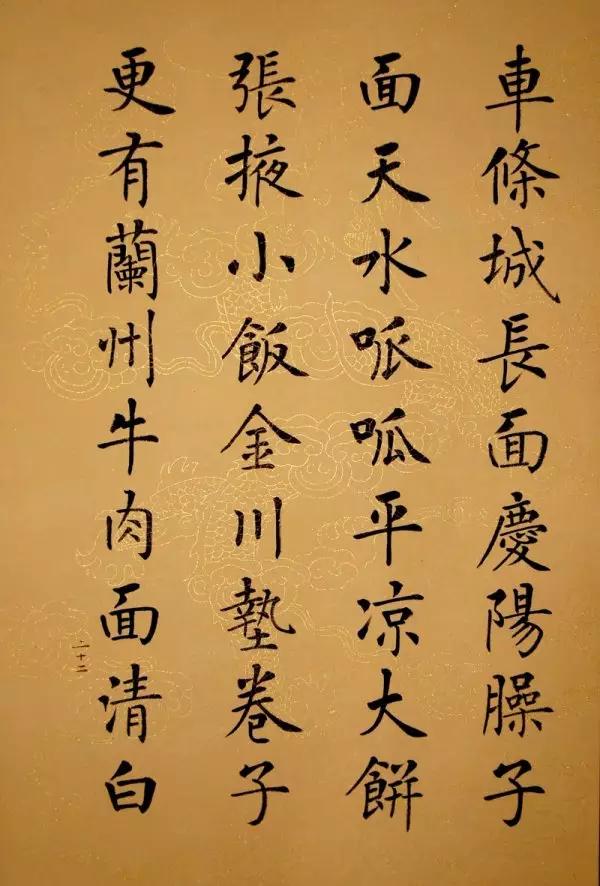 車條城長面慶陽臊子
面天水呱呱平凉大餅
張掖小飯金川墊卷子
更有蘭州牛肉面清白
二十二